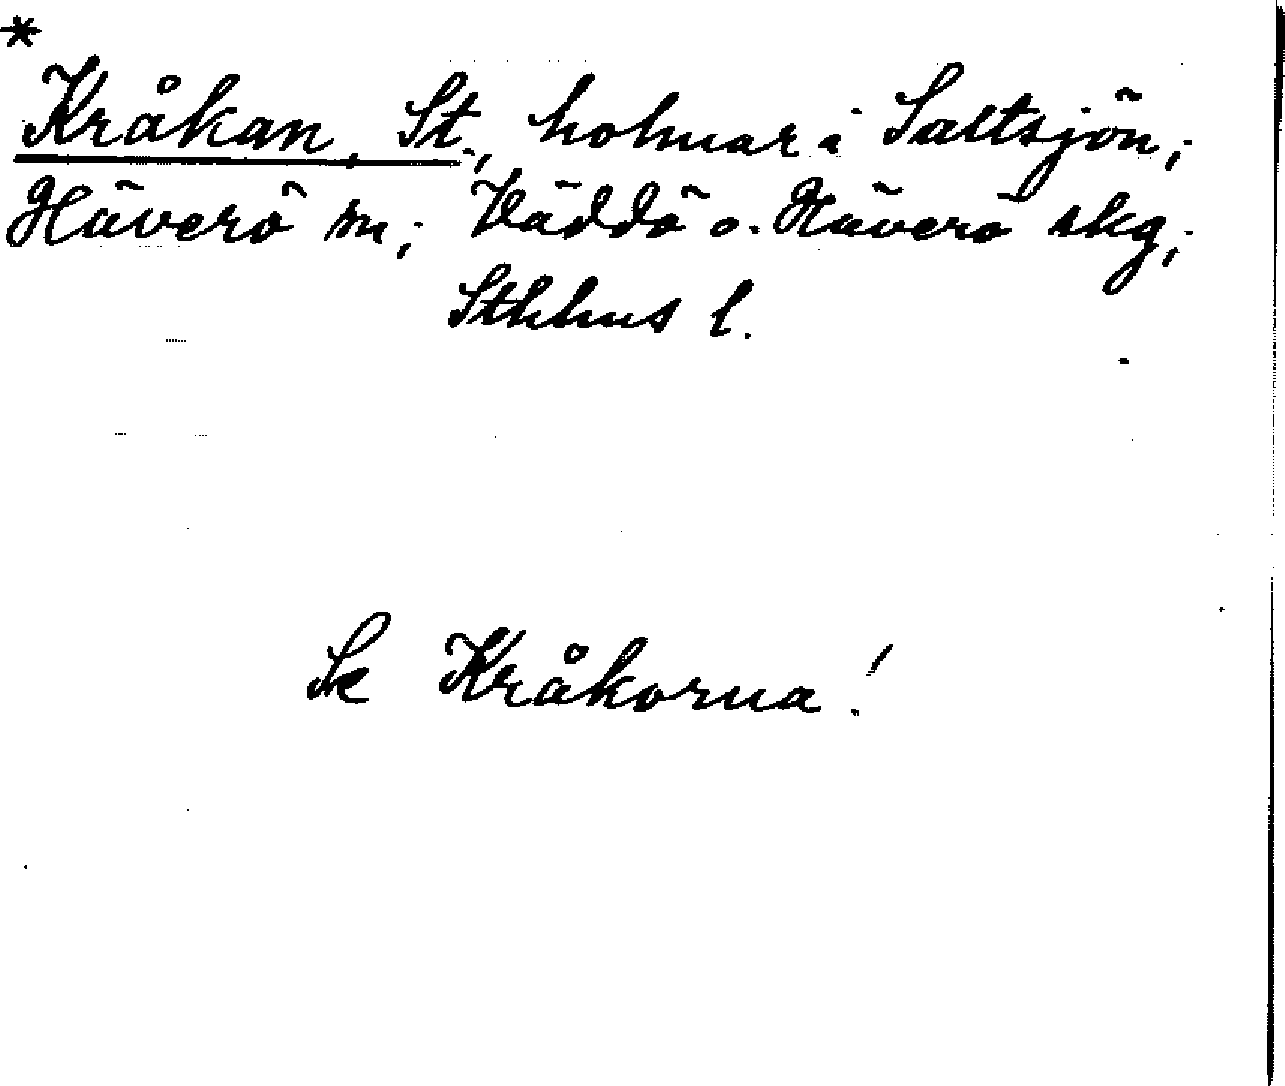 *
Kråkan, St., holmar i Saltsjön;
Häverö sn; Väddö o. Häverö skg;
Sthlms l.
Se Kråkorna!